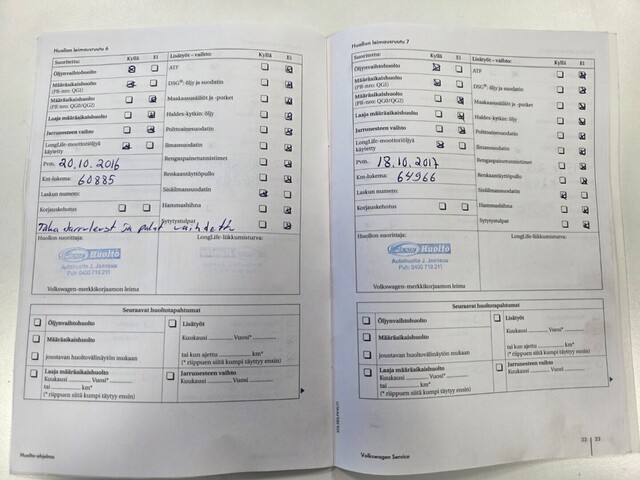 Huollon leimausruutu 6
Suoritettu: Kyllä Ei
Öljynvaihtohuolto
Määräaikaishuolto
(PR-nro: QG1)
Määräaikaishuolto
(PR-nro: QG0/QG2)
Laaja määräaikaishuolto
Jarrunesteen vaihto
LongLife-moottoriöljyä
käytetty
Pvm. 20.10.2016
Km-lukema: 60885
Laskun numero:
Korjauskehotus
Lisätyöt – vaihto: Kyllä Ei
ATF
DSG®: öljy ja suodatin
Muokkaussäiliöt ja -putket
Haldex-kytkin: öljy
Polttoainesuodatin
Ilmansuodatin
Rengaspainetunnistimet
Renkaantäyttöpullo
Sisäilmansuodatin
Hammashihna
Sytytystulpat
Taka Jarrulevyt ja palat vaihdettu
Huollon suorittaja:
LongLife-liikkumisturva:
Huolto
Autohuolto J. Joensuu
Puh: 0400 719 211
Volkswagen-merkkikorjaamon leima
Seuraavat huoltotapahtumat
Öljynvaihtohuolto
Määräaikaishuolto
joustavan huoltovälinäytön mukaan
Laaja määräaikaishuolto
Kuukausi Vuosi*
tai km*
(* riippuen siitä kumpi täytyy ensin)
Lisätyöt
Kuukausi Vuosi*
tai kun ajettu km*
(* riippuen siitä kumpi täytyy ensin)
Jarrunesteen vaihto
Kuukausi Vuosi
Huolto-ohjelma
Huollon leimausruutu 7
Suoritettu: Kyllä Ei
Öljynvaihtohuolto
Määräaikaishuolto
(PR-nro: QG1)
Määräaikaishuolto
(PR-nro: QG0/QG2)
Laaja määräaikaishuolto
Jarrunesteen vaihto
LongLife-moottoriöljyä
käytetty
Pvm. 18.10.2017
Km-lukema: 64966
Laskun numero:
Korjauskehotus
Lisätyöt – vaihto: Kyllä Ei
ATF
DSG®: öljy ja suodatin
Haldex-kytkin: öljy
Polttoainesuodatin
Ilmansuodatin
Rengaspainetunnistimet
Renkaantäyttöpullo
Sisäilmansuodatin
Hammashihna
Sytytystulpat
Huollon suorittaja:
LongLife-liikkumisturva:
Huolto
Autohuolto J. Joensuu
Puh: 0400 719 211
Volkswagen-merkkikorjaamon leima
Seuraavat huoltotapahtumat
Öljynvaihtohuolto
Määräaikaishuolto
joustavan huoltovälinäytön mukaan
Laaja määräaikaishuolto
Kuukausi Vuosi*
tai km*
(* riippuen siitä kumpi täytyy ensin)
Lisätyöt
Kuukausi Vuosi*
tai kun ajettu km*
(* riippuen siitä kumpi täytyy ensin)
Jarrunesteen vaihto
Kuukausi Vuosi
Volkswagen Service
22 23